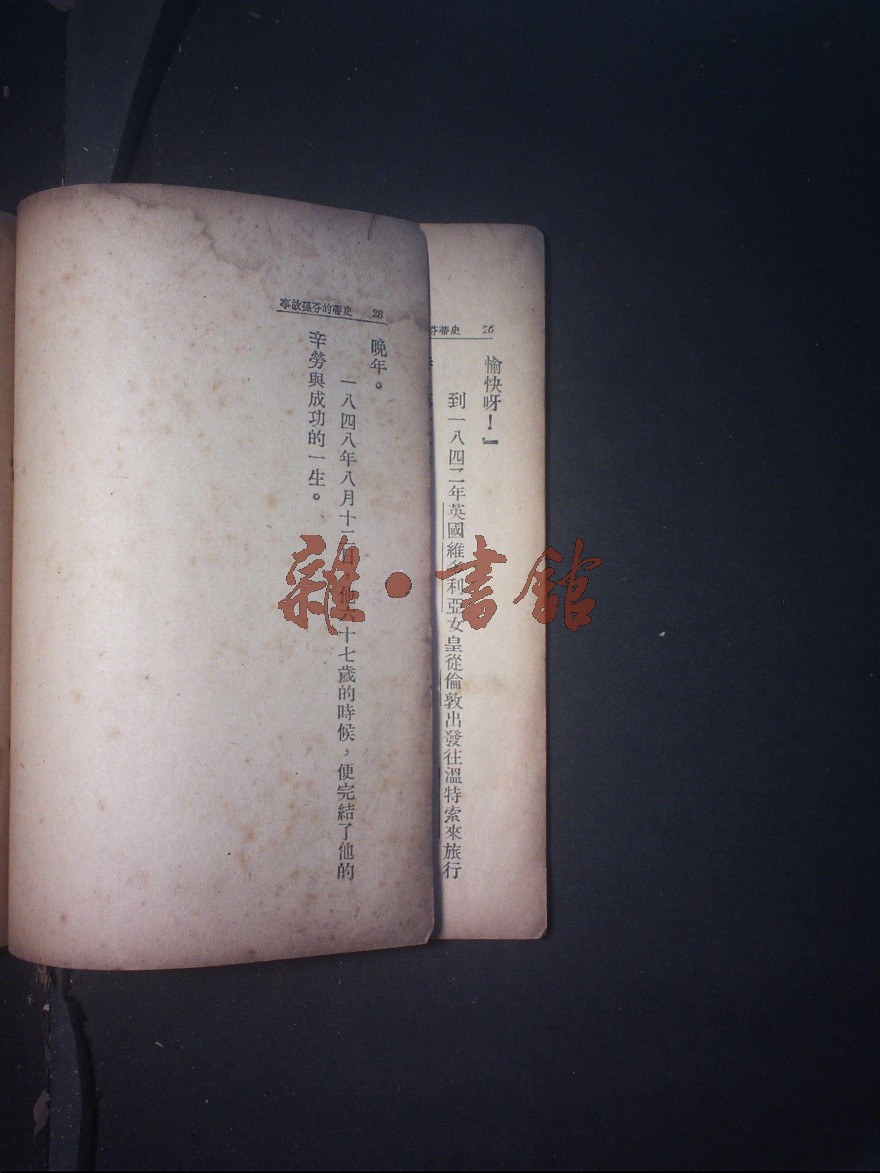 史蒂芬孫的故事 28
晚年。
一八四八年八月十二日,他六十七歲的時候,便完結了他的
辛勞與成功的一生。
史蒂芬 26
愉快呀!』
到一八四二年英國維多利亞女皇從倫敦出發往溫特索來旅行
雜·書館